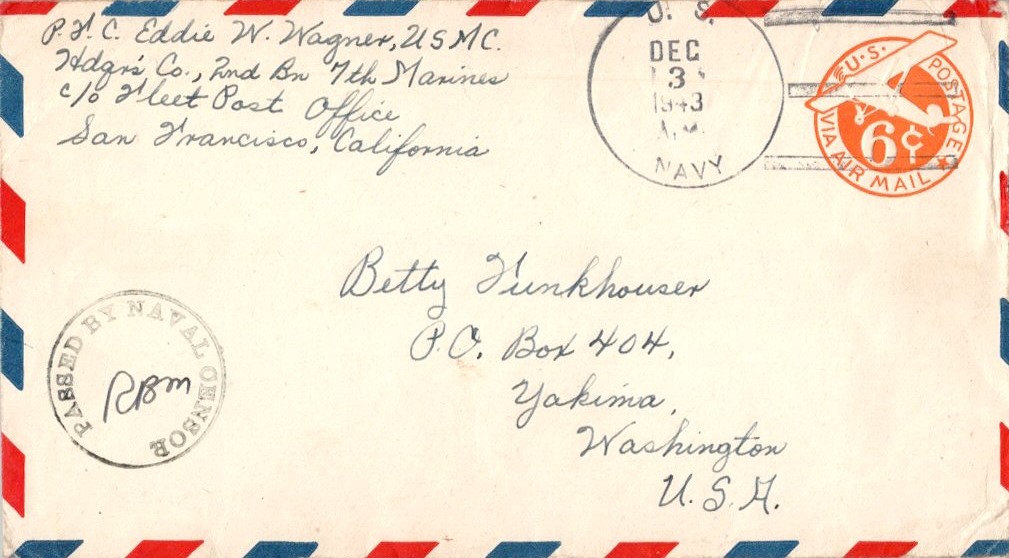 P.F.C. Eddie W. Wagner, USMC.
Hdqr's Co., 2nd Bn 7th Marines
c/o Fleet Post Office
San Francisco, California
U. S.
DEC
3
1943
A.M.
NAVY
U.S. POSTAGE
VIA AIR MAIL
6¢
Betty Funkhouser
P.O. Box 404,
Yakima,
Washington
U.S.A.
PASSED BY NAVAL CENSOR
RBM